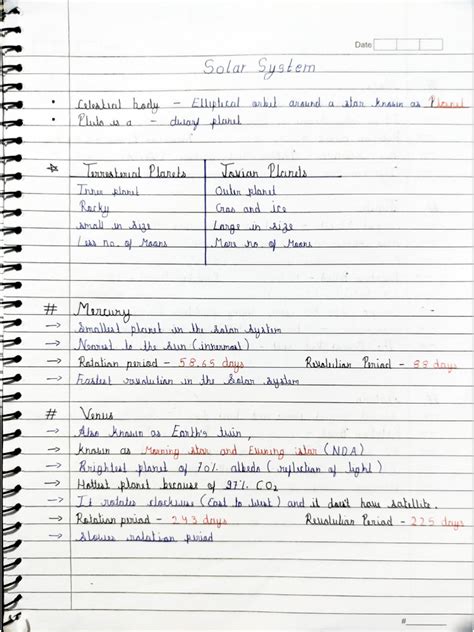 Date
Solar System
• Celestial body - Elliptical orbit around a star known as Planet
• Pluto is a - dwarf planet
☆ Terresterial Planets | Jovian Planets
Inner planet | Outer planet
Rocky | Gas and ice
small in size | Large in size
Less no. of Moons | More no of Moons
# Mercury
→ Smallest planet in the solar system
→ Nearest to the sun (innermost)
→ Rotation period - 58.65 days Revolution Period - 88 days
→ Fastest revolution in the Solar system
# Venus
→ Also known as Earth's twin,
→ known as Morning star and Evening star (NDA)
→ Brightest planet of 70% albedo (reflection of light)
→ Hottest planet because of 97% CO₂
→ It rotates clockwise (East to west) and it don't have satellite.
→ Rotation period - 243 days Revolution Period - 225 days
→ Slower rotation period
#